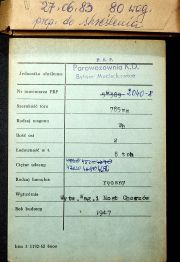 27.06.83 80 wag.
prep. do skreślenia
P.K.P.
Jednostka służbowa
Parowozownia K.D.
Bytom Maciejkowice
Nr inwentarza PKP
2040-8
Szerokość toru
785mm
Rodzaj wagonu
Ilość osi
2
Ładowność w t.
5 ton
Ciężar własny
Rodzaj hamulca
ręczny
Wytwórnia
Wytw. Wag. i Most Chorzów
Rok budowy
1947